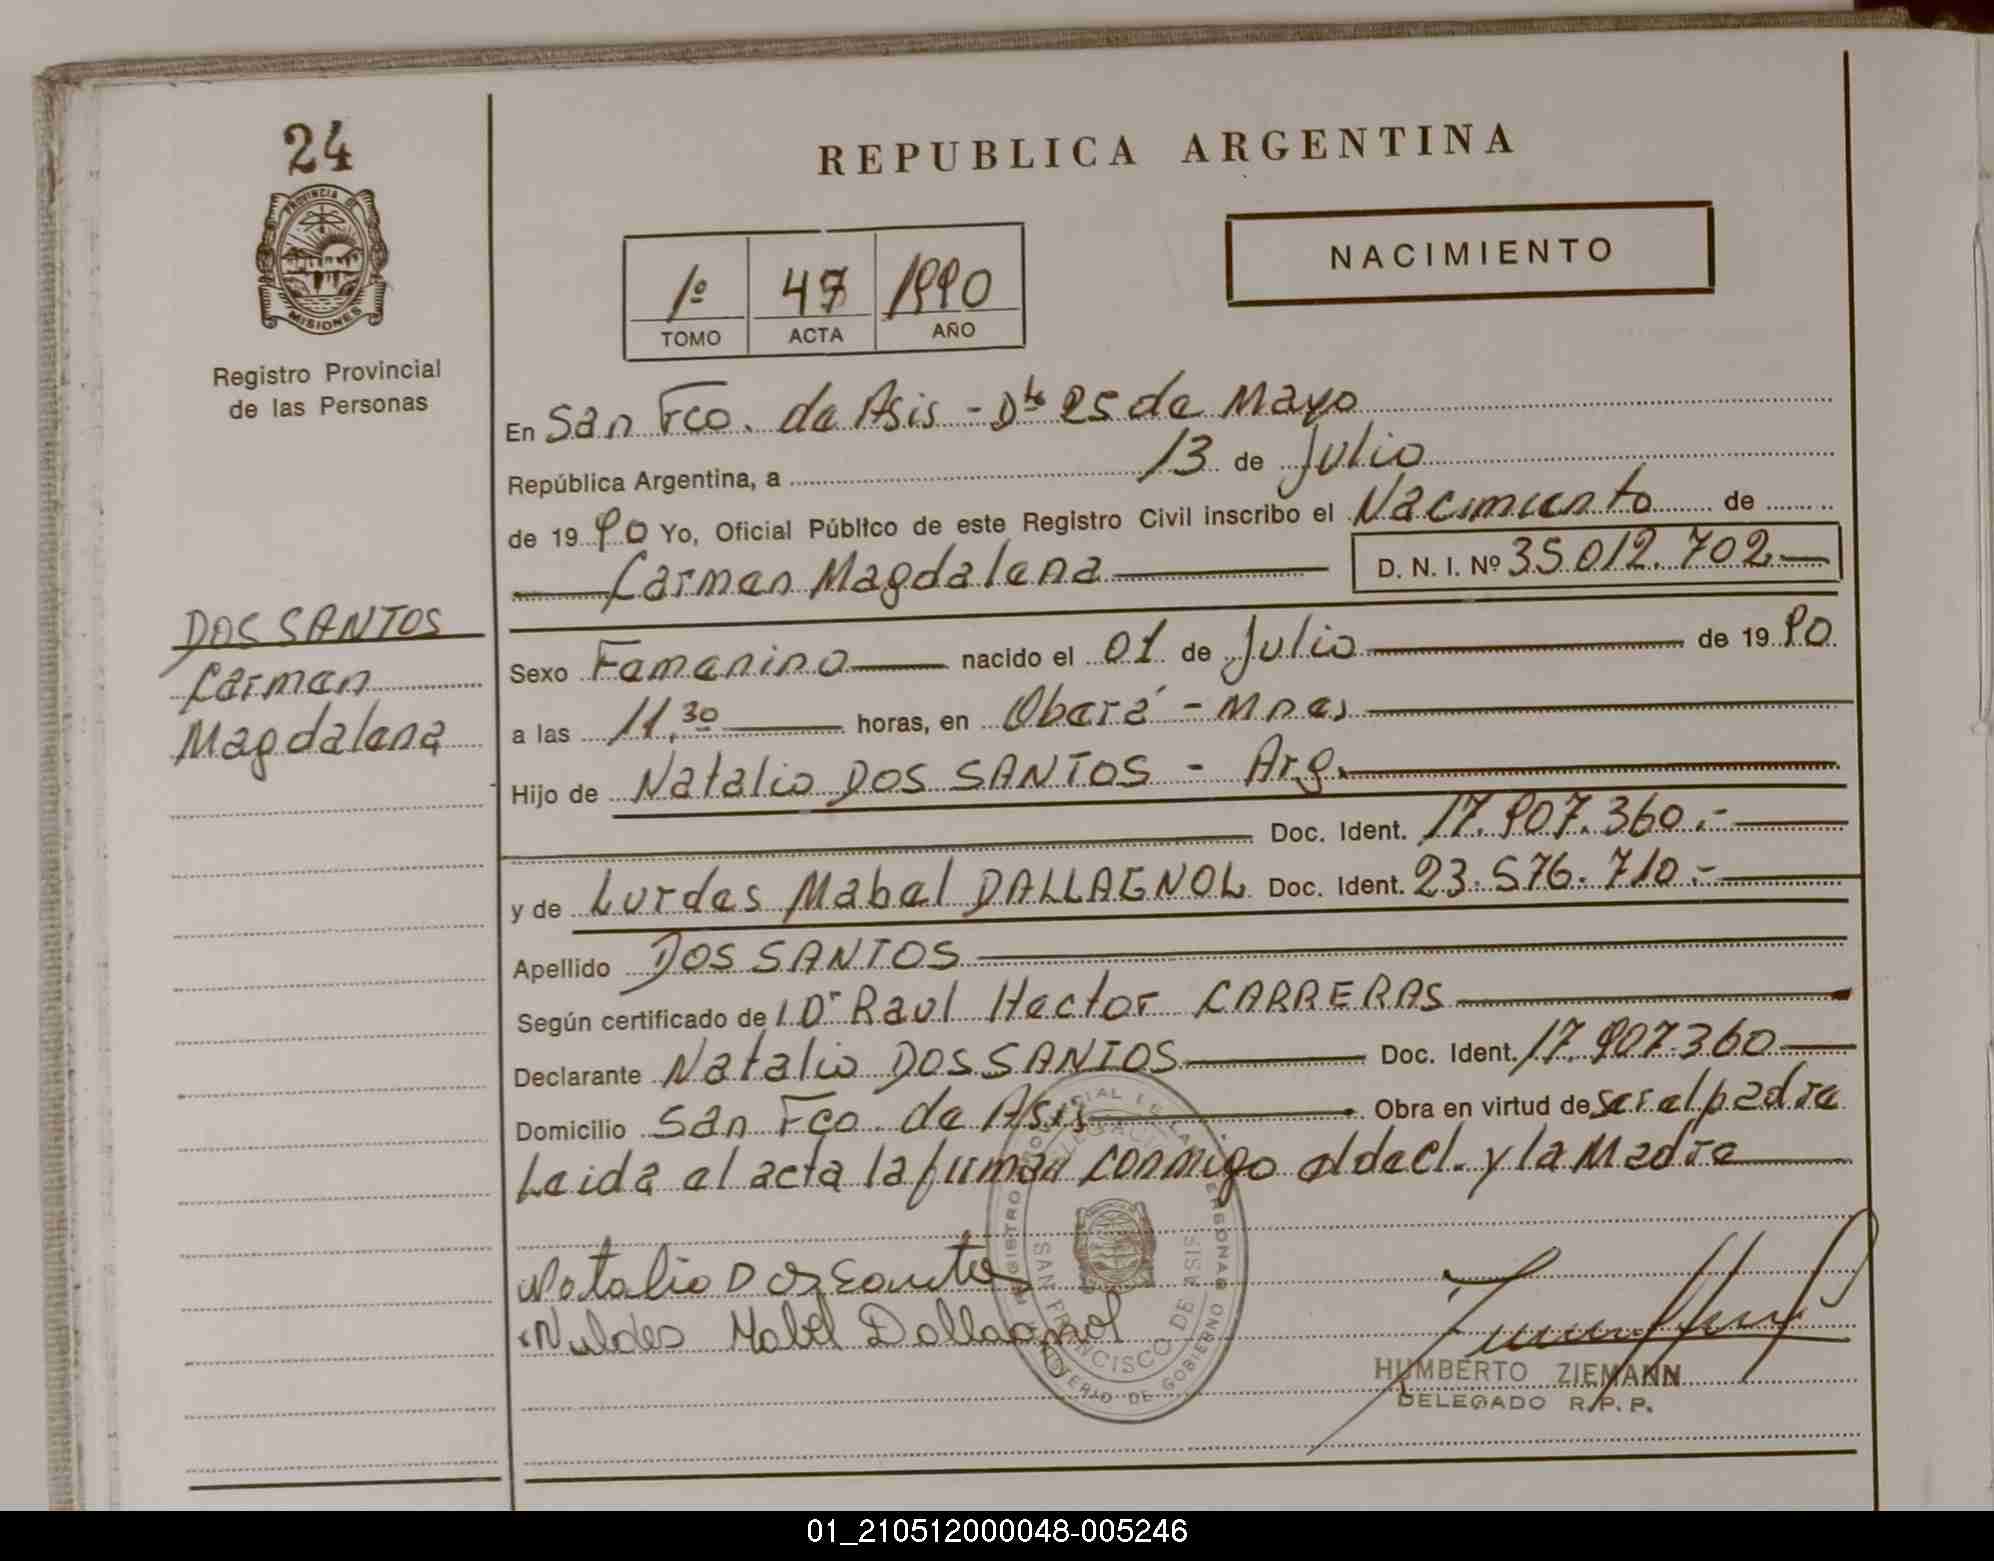 24
PROVINCIA DE
MISIONES
Registro Provincial
de las Personas
DOS SANTOS
Carmen
Magdalena
REPUBLICA ARGENTINA
NACIMIENTO
1º 47 1990
TOMO ACTA AÑO
En San Fco. de Asis - Dto 25 de Mayo
República Argentina, a 13 de Julio
de 1990 Yo, Oficial Público de este Registro Civil inscribo el Nacimiento de
Carmen Magdalena D. N. I. Nº 35.012.702
Sexo Femenino nacido el 01 de Julio de 1990
a las 11,30 horas, en Oberá - Mnes
Hijo de Natalio DOS SANTOS - Arg.
Doc. Ident. 17.907.360.-
y de Lurdes Mabel DALLAGNOL Doc. Ident. 23.576.710.-
Apellido DOS SANTOS
Según certificado de l Dr Raul Hector CARRERAS
Declarante Natalio DOS SANTOS Doc. Ident. 17.907.360
Domicilio San Fco. de Asis Obra en virtud de ser el padre
Leida el acta la firman conmigo el decl. y la Madre
Natalio Dos Santos
Mabel Dallagnol
SAN FRANCISCO DE ASIS
MINISTERIO DE GOBIERNO
HUMBERTO ZIEMANN
DELEGADO R.P.P.
01_210512000048-005246